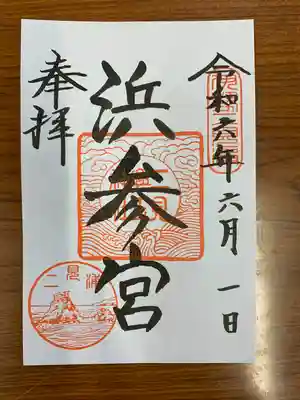 令和六年六月一日
浜参宮
奉拝
二見浦